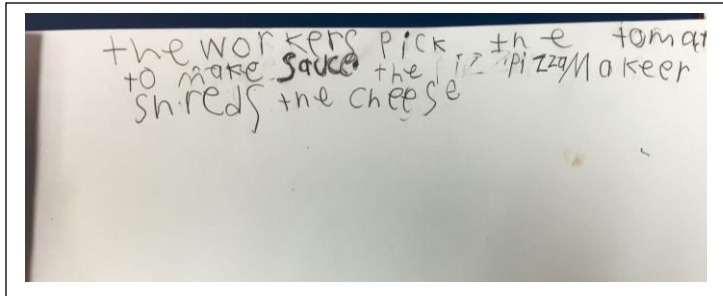 the workers pick the tomat
to make sauce the pizzaMakeer
shreds the cheese